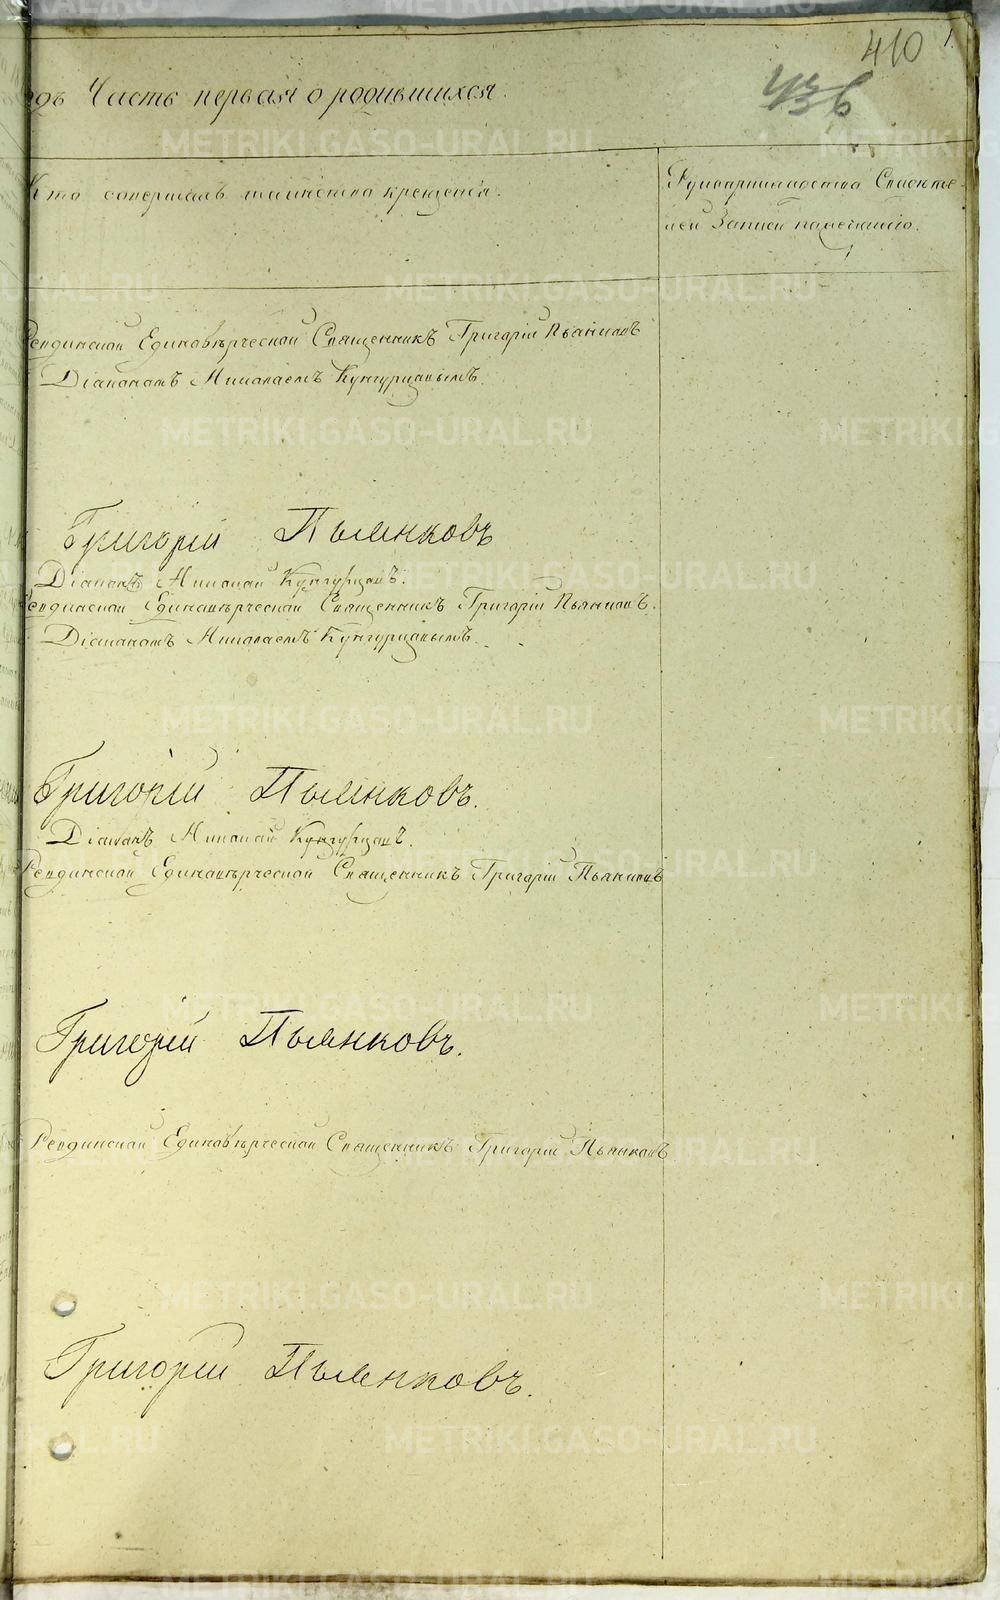 410
436
одъ Часть первая о родившихся.
Кто совершалъ таинство крещенія.
Рукоприкладство Свидѣте-
лей Записи по желанію.
Ревдинскій Единовѣрческій Священникъ Григорій Пьянковъ
Діакономъ Николаемъ Кунгурцовымъ.
Григорій Пьянковъ
Діаконъ Николай Кунгурцовъ.
Ревдинскій Единовѣрческій Священникъ Григорій Пьянковъ.
Діакономъ Николаемъ Кунгурцовымъ.
Григорій Пьянковъ.
Діаконъ Николай Кунгурцовъ.
Ревдинскій Единовѣрческій Священникъ Григорій Пьянковъ
Григорій Пьянковъ.
Ревдинскій Единовѣрческій Священникъ Григорій Пьянковъ
Григорій Пьянковъ.
METRIKI.GASO-URAL.RU